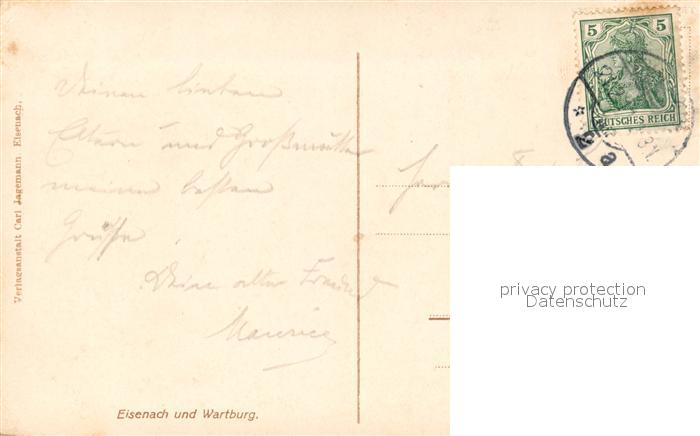 Verlagsanstalt Carl Jagemann. Eisenach.
Deinen lieben
Eltern und Großmutter
meine besten
Grüße
Dein alter Freund
Maurice
Eisenach und Wartburg.
5 5
DEUTSCHES REICH
privacy protection
Datenschutz